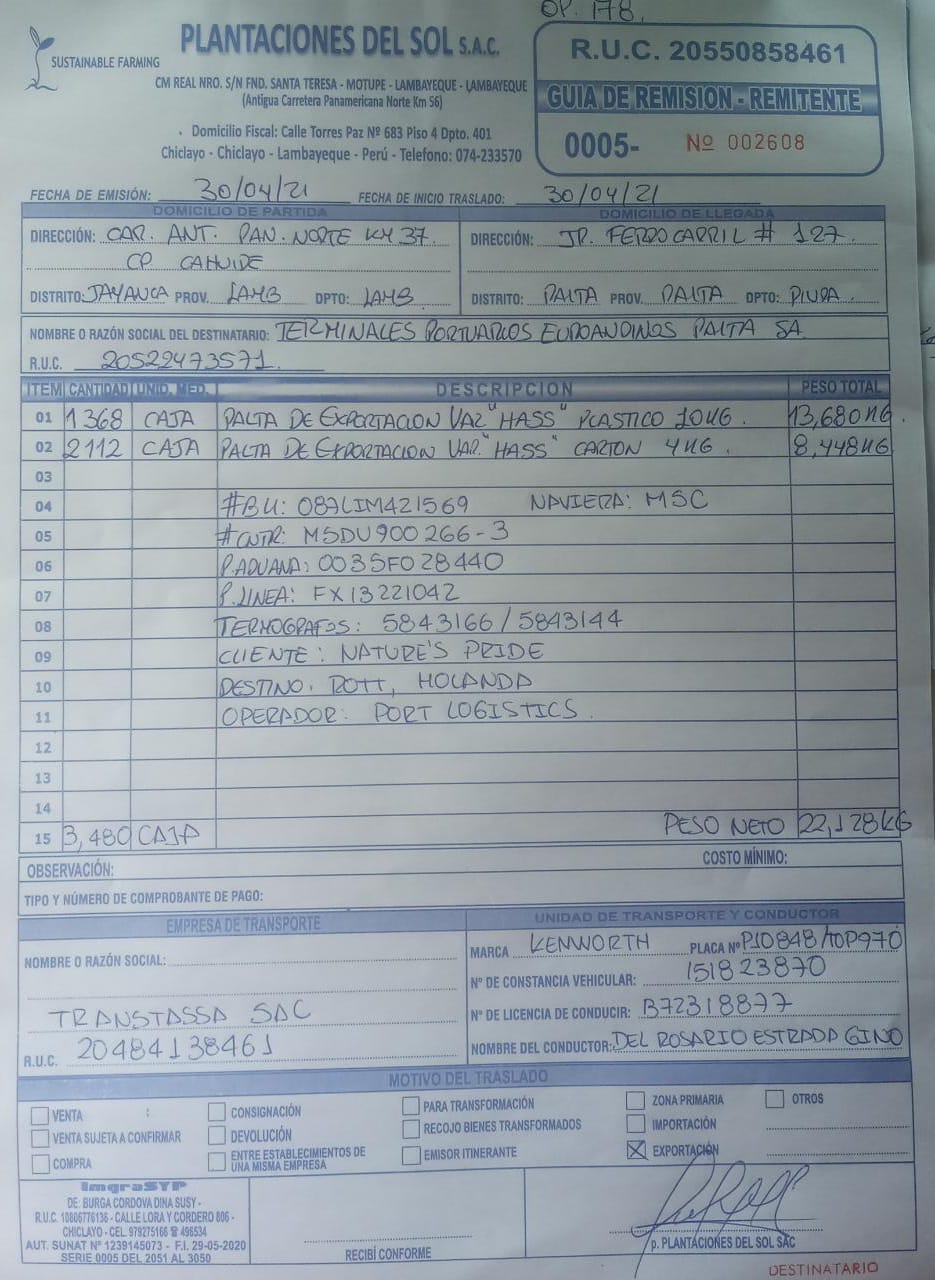 OP. 178.
SUSTAINABLE FARMING
PLANTACIONES DEL SOL S.A.C.
CM REAL NRO. S/N FND. SANTA TERESA - MOTUPE - LAMBAYEQUE - LAMBAYEQUE
(Antigua Carretera Panamericana Norte Km 56)
Domicilio Fiscal: Calle Torres Paz Nº 683 Piso 4 Dpto. 401
Chiclayo - Chiclayo - Lambayeque - Perú - Telefono: 074-233570
R.U.C. 20550858461
GUIA DE REMISION - REMITENTE
0005- Nº 002608
FECHA DE EMISIÓN: 30/04/21 FECHA DE INICIO TRASLADO: 30/04/21
DOMICILIO DE PARTIDA DOMICILIO DE LLEGADA
DIRECCIÓN: CAR. ANT. PAN. NORTE KM 37. DIRECCIÓN: JR. FERROCARRIL # 127.
CP CAHUIDE
DISTRITO: JAYANCA PROV. LAMB DPTO: LAMB. DISTRITO: PAITA PROV. PAITA DPTO: PIURA.
NOMBRE O RAZÓN SOCIAL DEL DESTINATARIO: TERMINALES PORTUARIOS EUROANDINOS PAITA SA
R.U.C. 20522473571.
ITEM CANTIDAD UNID. MED. DESCRIPCION PESO TOTAL
01 1368 CAJA PALTA DE EXPORTACION VAR "HASS" PLASTICO 10KG. 13,680KG.
02 2112 CAJA PALTA DE EXPORTACION VAR. "HASS" CARTON 4KG. 8,448KG
03
04 #BK: 087LIM421569 NAVIERA: MSC
05 #CNTR: MSDU900266-3
06 P.ADUANA: 0035F028440
07 P.LINEA: FX13221042
08 TERMOGRAFOS: 5843166 / 5843144
09 CLIENTE: NATURE'S PRIDE
10 DESTINO. ROTT, HOLANDA
11 OPERADOR: PORT LOGISTICS.
12
13
14
15 3,480 CAJA PESO NETO 22,128KG
OBSERVACIÓN: COSTO MÍNIMO:
TIPO Y NÚMERO DE COMPROBANTE DE PAGO:
EMPRESA DE TRANSPORTE UNIDAD DE TRANSPORTE Y CONDUCTOR
NOMBRE O RAZÓN SOCIAL: MARCA KENWORTH PLACA Nº P1O848/TOP970
Nº DE CONSTANCIA VEHICULAR: 151823870
TRANSTASSA SAC Nº DE LICENCIA DE CONDUCIR: B72318877
R.U.C. 20484138461 NOMBRE DEL CONDUCTOR: DEL ROSARIO ESTRADA GINO
MOTIVO DEL TRASLADO
VENTA CONSIGNACIÓN PARA TRANSFORMACIÓN ZONA PRIMARIA OTROS
VENTA SUJETA A CONFIRMAR DEVOLUCIÓN RECOJO BIENES TRANSFORMADOS IMPORTACIÓN
COMPRA ENTRE ESTABLECIMIENTOS DE UNA MISMA EMPRESA EMISOR ITINERANTE EXPORTACIÓN
ImgraSYP
DE: BURGA CORDOVA DINA SUSY -
R.U.C. 10806776136 - CALLE LORA Y CORDERO 806 -
CHICLAYO - CEL. 979275166 ☎ 496534
AUT. SUNAT Nº 1239145073 - F.I. 29-05-2020
SERIE 0005 DEL 2051 AL 3050
RECIBÍ CONFORME
p. PLANTACIONES DEL SOL SAC
DESTINATARIO